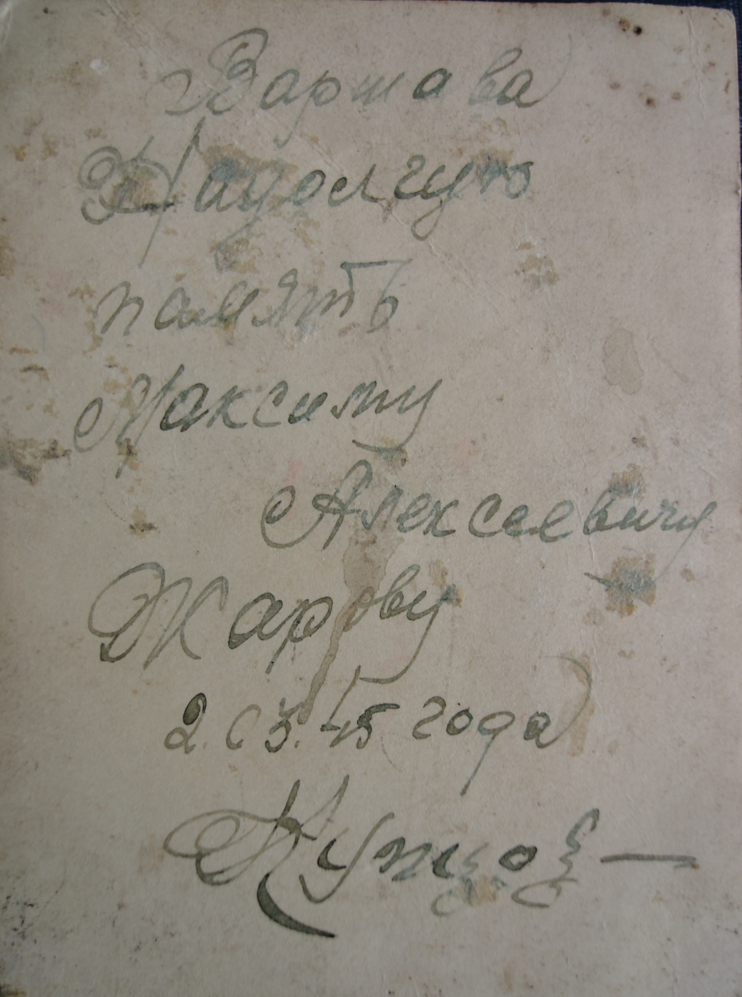 г Варшава
На долгую
память
Максиму
Алексеевичу
Жарову
2.03.45 года
Купцов